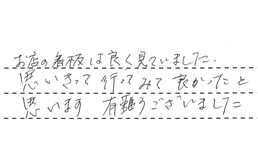 お店の看板は良く見ていました.
思いきって 行ってみて 良かったと
思います 有難うございました